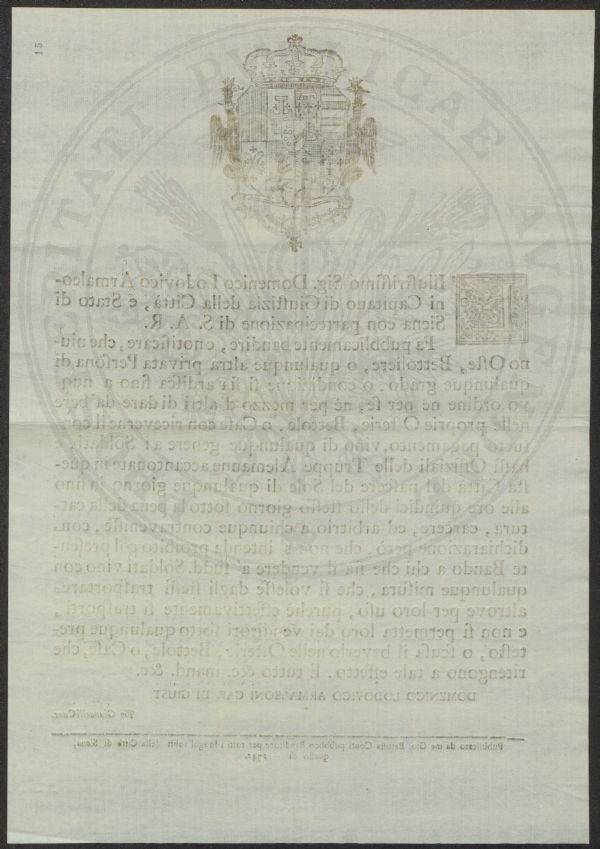 15
Illustrissimo Sig. Domenico Lodovico Armaleo-
ni Capitano di Giustizia della Città, e Stato di
Siena con partecipazione di S. A. R.
Fa pubblicamente bandire, e notificare, che niu-
no Oste, Bettoliere, o qualunque altra privata Persona di
qualunque grado, o condizione si sia ardisca fino a nuo-
vo ordine nè per se, nè per mezzo d'altri di dare da bere
nelle proprie Osterie, Bettole, o Case con riceverne il con-
sueto pagamento, vino di qualunque genere a i Soldati, e
bassi Offiziali delle Truppe Alemanne accantonate in que-
sta Città dal nascere del Sole di qualunque giorno in fino
alle ore quindici dello stesso giorno sotto la pena della cat-
tura, carcere, ed arbitrio a chiunque contravenisse, con
dichiarazione però, che non s'intenda proibito col presen-
te Bando a chi che sia il vendere a' sudd. Soldati vino con
qualunque misura, che si volesse dagli stessi trasportare
altrove per loro uso, purchè effettivamente si trasporti,
e non si permetta loro dei venditori sotto qualunque pre-
testo, o scusa il beverlo nelle Osterie, Bettole, o Case, che
ritengono a tale effetto. E tutto &c. mand. &c.
DOMENICO LODOVICO ARMALEONI CAP. DI GIUST.
Pubblicato da me Gio: Batista Conti pubblico Banditore per tutti i luoghi soliti della Città di Siena,
questo dì
UTILITATI PUBLICAE AUGE